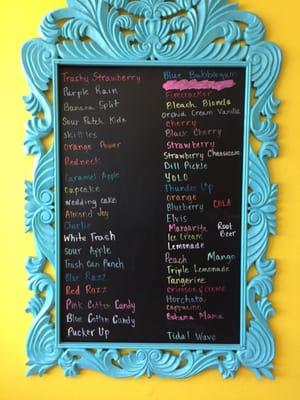 Trashy Strawberry
Purple Rain
Banana Split
Sour Patch Kids
Skittles
Orange Power
Redneck
Caramel Apple
Cupcake
Wedding Cake
Almond Joy
Charlie
White Trash
Sour Apple
Trash Can Punch
Blue Razz
Red Razz
Pink Cotton Candy
Blue Cotton Candy
Pucker Up
Blue Bubblegum
Firecracker
Bleach Blonde
Orchid Cream Vanilla
Cherry
Black Cherry
Strawberry
Strawberry Cheesecake
Dill Pickle
YOLO
Thunder Up
Orange
Blueberry COLA
Elvis
Margarita Root
Ice Cream Beer
Lemonade
Peach Mango
Triple Lemonade
Tangerine
Crimson & Creme
Horchata
Cappuccino
Bahama Mama
Tidal Wave